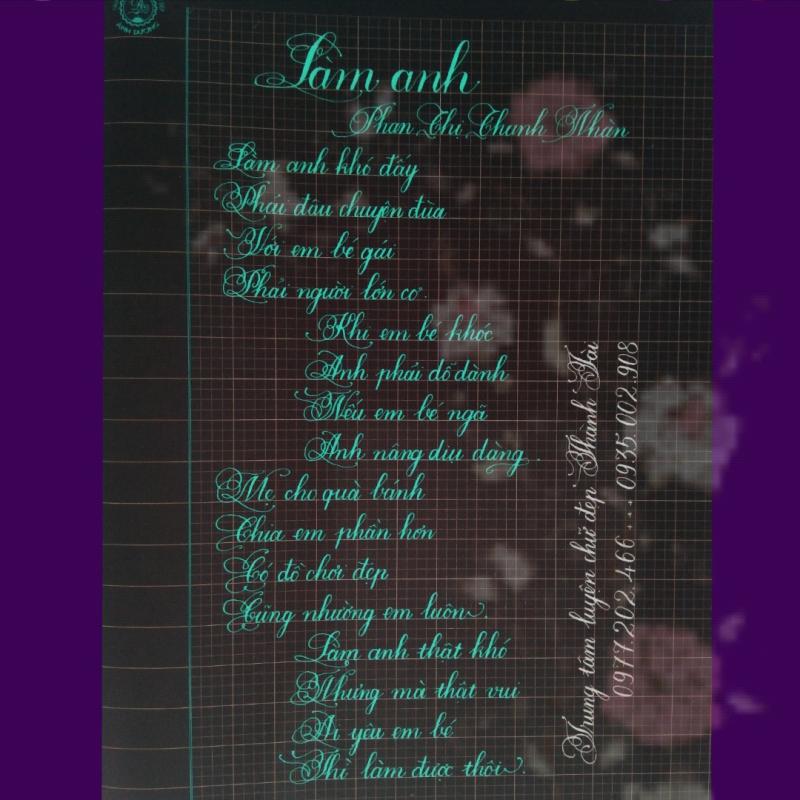 ÁNH DƯƠNG
Làm anh
Phan Thị Thanh Nhàn
Làm anh khó đấy
Phải đâu chuyện đùa
Với em bé gái
Phải người lớn cơ.
Khi em bé khóc
Anh phải dỗ dành
Nếu em bé ngã
Anh nâng dịu dàng.
Mẹ cho quà bánh
Chia em phần hơn
Có đồ chơi đẹp
Cũng nhường em luôn.
Làm anh thật khó
Nhưng mà thật vui
Ai yêu em bé
Thì làm được thôi.
Trung tâm luyện chữ đẹp Thành Tài
0977.202.466 ... 0935.002.908